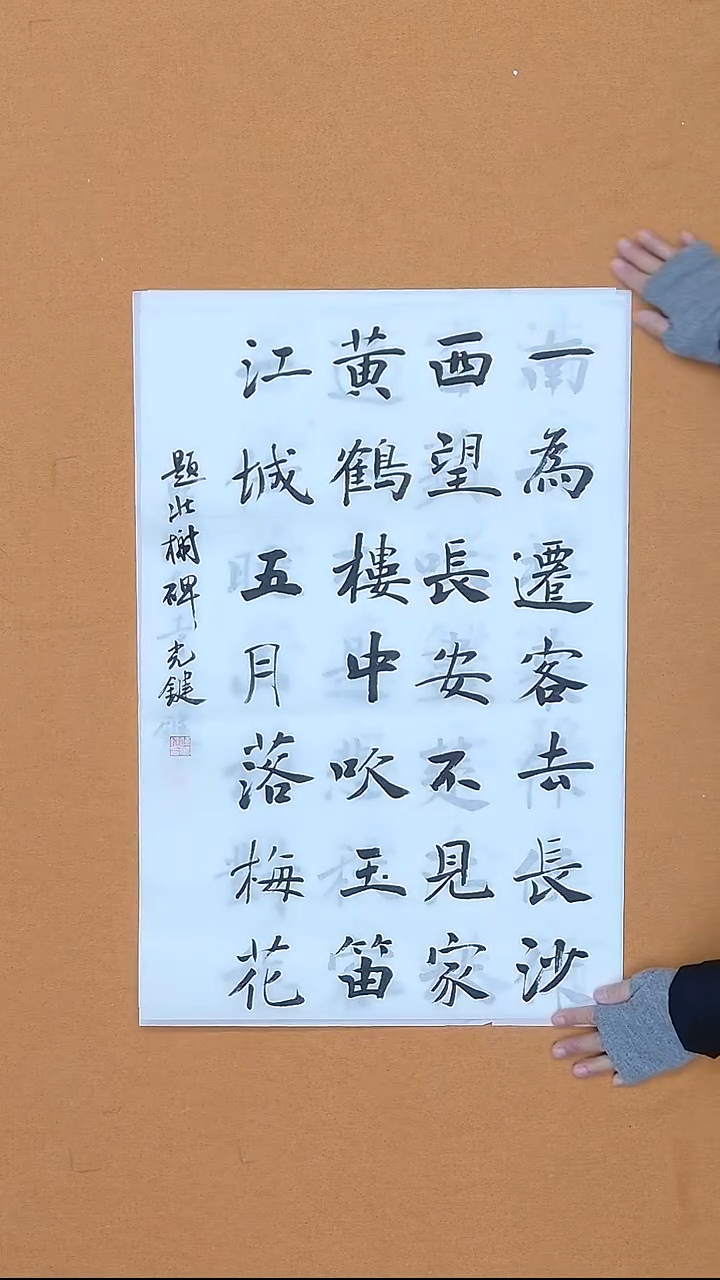 一為遷客去長沙
西望長安不見家
黃鶴樓中吹玉笛
江城五月落梅花
題北榭碑 光鍵